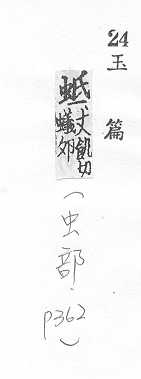 24 玉篇
蚳 丈飢切
蟻夘
(虫部. p362)